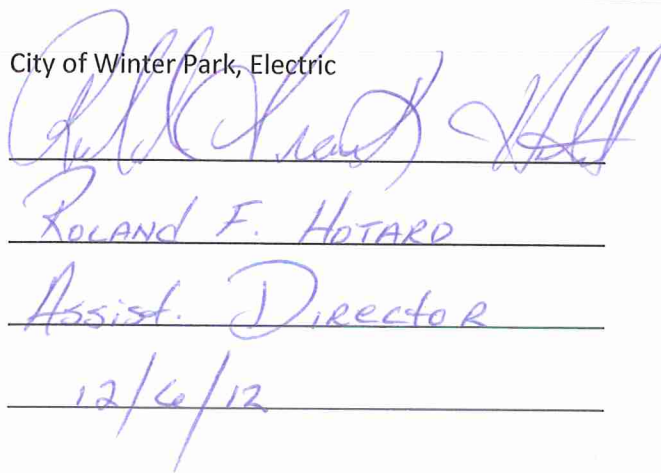 City of Winter Park, Electric
Roland F. Hotard
Assist. Director
12/6/12